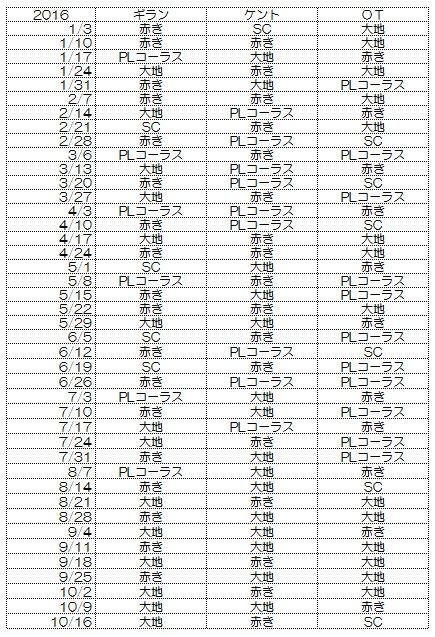 2016 ギラン ケント OT
1/3 赤き SC 大地
1/10 赤き 赤き 大地
1/17 PLコーラス 大地 赤き
1/24 大地 赤き 大地
1/31 赤き 大地 PLコーラス
2/7 赤き 赤き 大地
2/14 大地 PLコーラス 赤き
2/21 SC 赤き 大地
2/28 赤き PLコーラス SC
3/6 PLコーラス 赤き PLコーラス
3/13 大地 PLコーラス 赤き
3/20 赤き PLコーラス SC
3/27 大地 赤き PLコーラス
4/3 PLコーラス PLコーラス 赤き
4/10 赤き PLコーラス SC
4/17 大地 赤き 大地
4/24 赤き 赤き 大地
5/1 SC 大地 赤き
5/8 PLコーラス 赤き PLコーラス
5/15 赤き 大地 PLコーラス
5/22 赤き 赤き 大地
5/29 大地 大地 赤き
6/5 SC 赤き PLコーラス
6/12 赤き PLコーラス SC
6/19 SC 赤き PLコーラス
6/26 赤き PLコーラス PLコーラス
7/3 PLコーラス 大地 赤き
7/10 赤き 大地 PLコーラス
7/17 大地 PLコーラス 赤き
7/24 大地 赤き PLコーラス
7/31 赤き 大地 PLコーラス
8/7 PLコーラス 大地 赤き
8/14 赤き 大地 SC
8/21 大地 大地 大地
8/28 赤き 大地 大地
9/4 大地 大地 赤き
9/11 赤き 大地 大地
9/18 大地 赤き 大地
9/25 赤き 大地 大地
10/2 大地 赤き 大地
10/9 大地 大地 赤き
10/16 大地 赤き SC